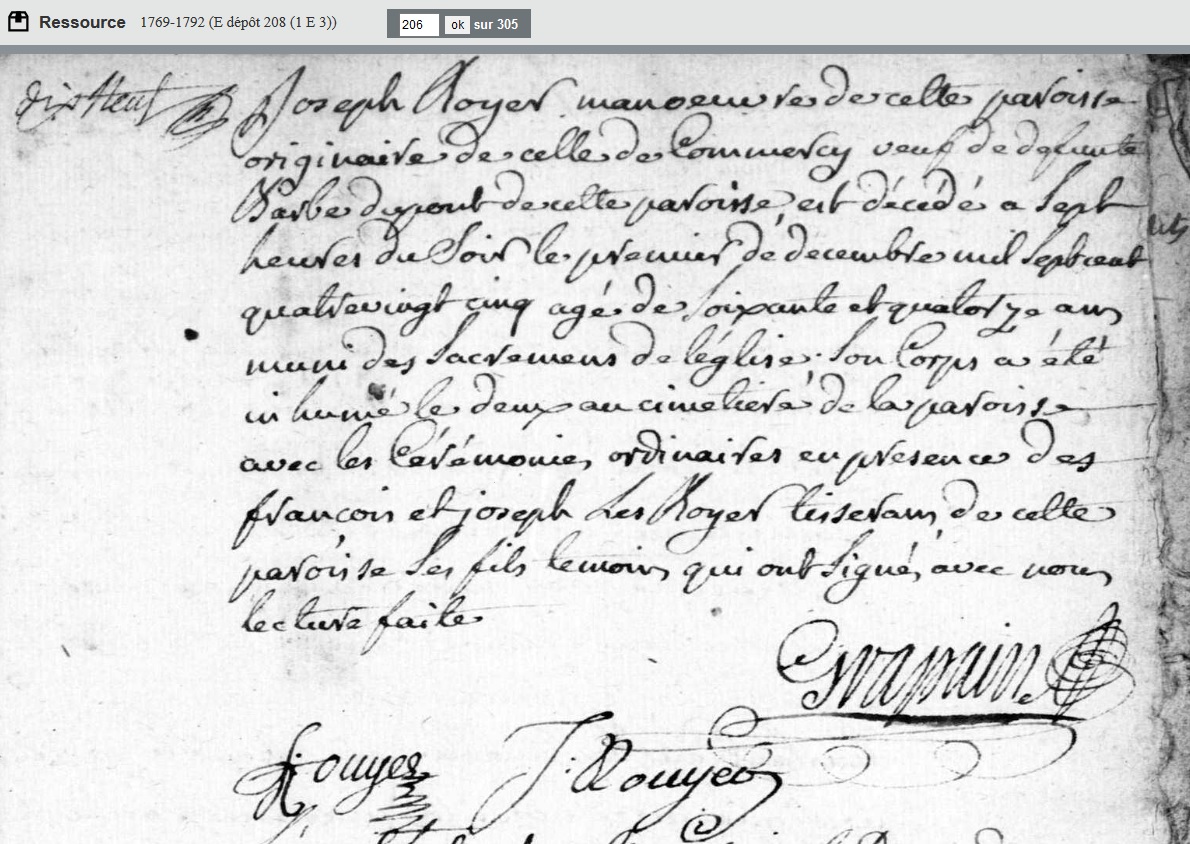 Ressource 1769-1792 (E dépôt 208 (1 E 3)) 206 ok sur 305
Joseph Royer manoeuvre de cette paroisse
originaire de celle de Commercy veuf de defunte
Barbe dupont de cette paroisse est décédé a sept
heures du soir le premier de decembre mil sept cent
quatre vingt cinq agé de soixante et quatorze ans
muni des sacremens de l'église. Son Corps a été
inhumé le deux au cimetiere de la paroisse
avec les Cérémonies ordinaires en presence des
françois et joseph Les Royer tisserans de cette
paroisse ses fils temoins qui ont signé avec nous
lecture faite
f Rouyer J. Rouyer